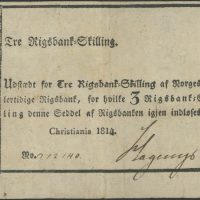 Tre Rigsbank-Skilling.
Udstædt for Tre Rigsbank-Skilling af Norges
lertidige Rigsbank, for hvilke 3 Rigsbank-
ling denne Seddel af Rigsbanken igjen indløses
Christiania 1814.
No.